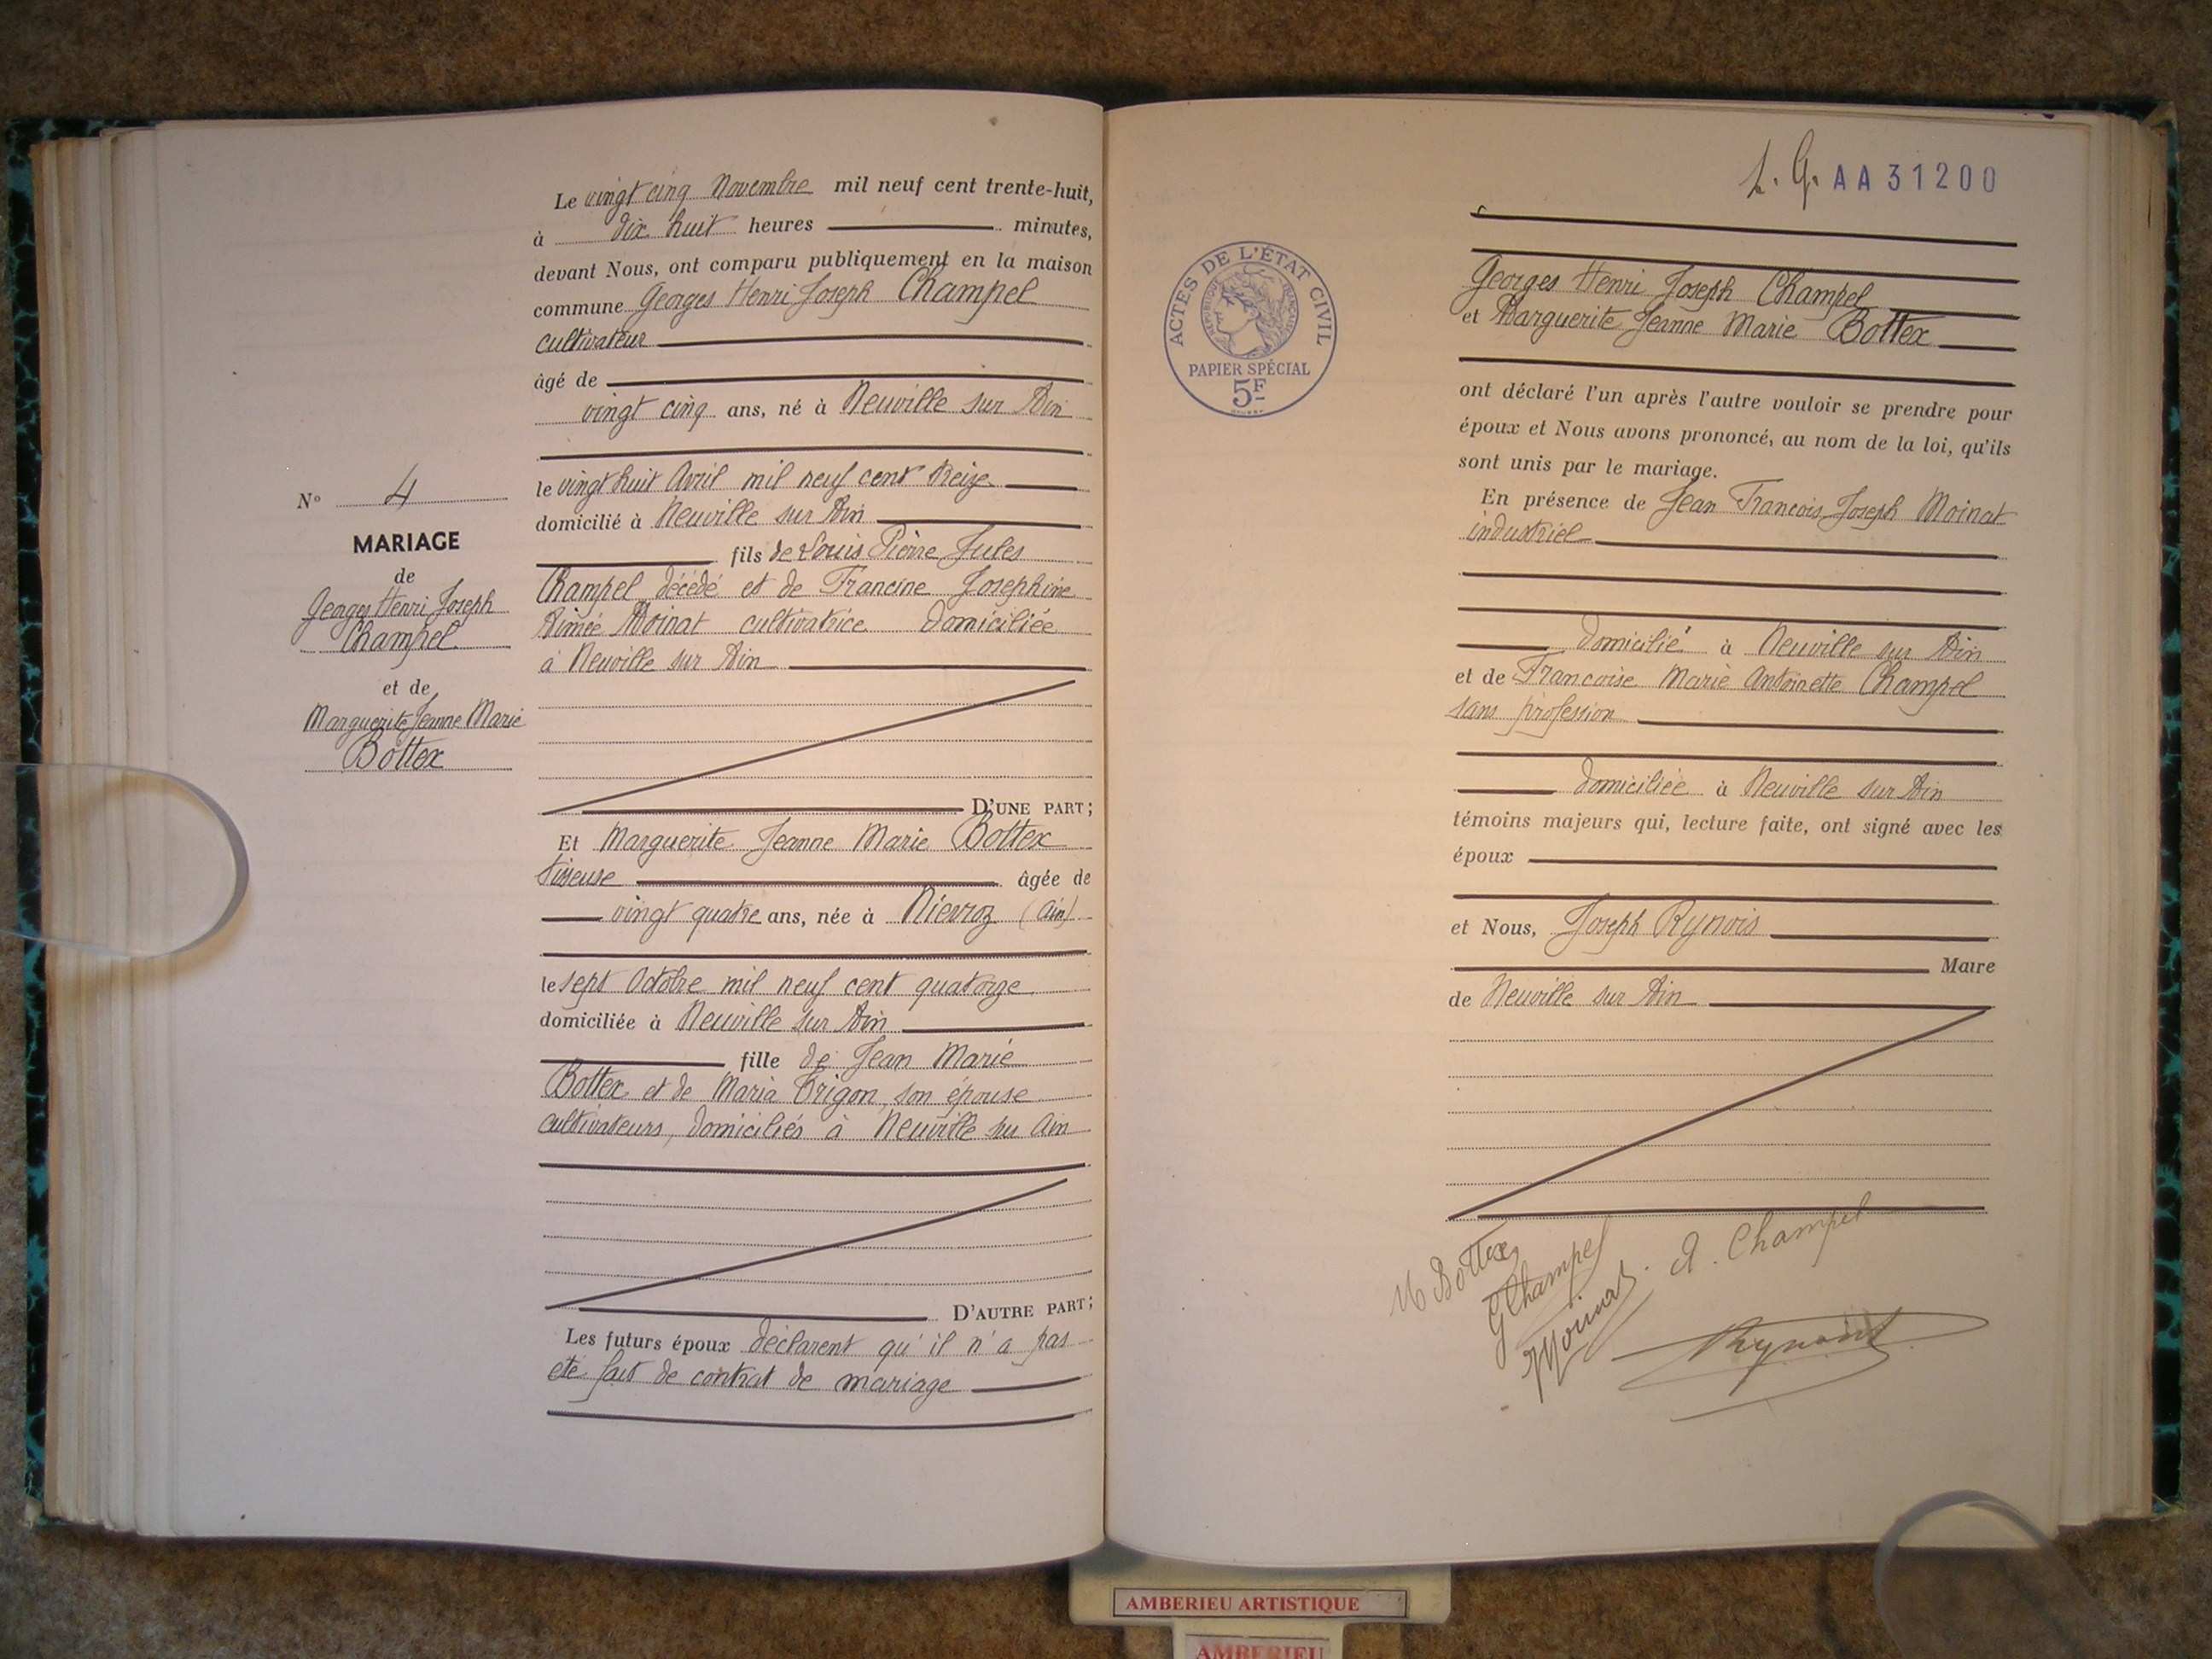 Le vingt cinq Novembre mil neuf cent trente-huit,
à dix huit heures minutes,
devant Nous, ont comparu publiquement en la maison
commune Georges Henri Joseph Champel
cultivateur
âgé de
vingt cinq ans, né à Neuville sur Ain
le vingt huit Avril mil neuf cent treize
domicilié à Neuville sur Ain
fils de Louis Pierre Jules
Champel décédé et de Francine Josephine
Aimée Moinat cultivatrice domiciliée
à Neuville sur Ain
D'UNE PART;
Et Marguerite Jeanne Marie Bottex
tisseuse âgée de
vingt quatre ans, née à Niévroz (Ain)
le sept Octobre mil neuf cent quatorze
domiciliée à Neuville sur Ain
fille de Jean Marie
Bottex et de Maria Trigon, son épouse
cultivateurs, domiciliés à Neuville sur Ain
D'AUTRE PART;
Les futurs époux déclarent qu'il n'a pas
été fait de contrat de mariage
N° 4
MARIAGE
de
Georges Henri Joseph
Champel
et de
Marguerite Jeanne Marie
Bottex
AA31200
ACTES DE L'ÉTAT CIVIL
RÉPUBLIQUE FRANÇAISE
PAPIER SPÉCIAL
5F
Georges Henri Joseph Champel
et Marguerite Jeanne Marie Bottex
ont déclaré l'un après l'autre vouloir se prendre pour
époux et Nous avons prononcé, au nom de la loi, qu'ils
sont unis par le mariage.
En présence de Jean François Joseph Moinat
industriel
domicilié à Neuville sur Ain
et de Francoise Marie Antoinette Champel
sans profession
domiciliée à Neuville sur Ain
témoins majeurs qui, lecture faite, ont signé avec les
époux
et Nous, Joseph Rynois
Maire
de Neuville sur Ain
M Bottex
G Champel
A. Champel
Moinat
Rynois
AMBERIEU ARTISTIQUE
AMBERIEU